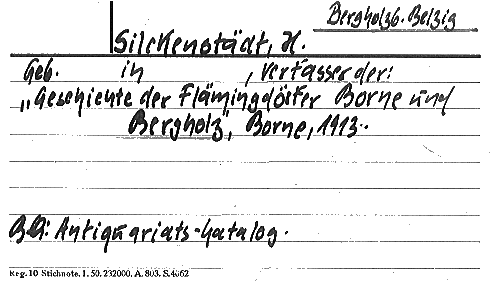 Bergholz b. Belzig
Silckenstädt, H.
Geb. in , Verfasser der:
"Geschichte der Flämingdörfer Borne und
Bergholz", Borne, 1913.
BQ: Antiquariats-Katalog.
Reg. 10 Stichnote. 1. 50. 232000. A. 803. S. 4062